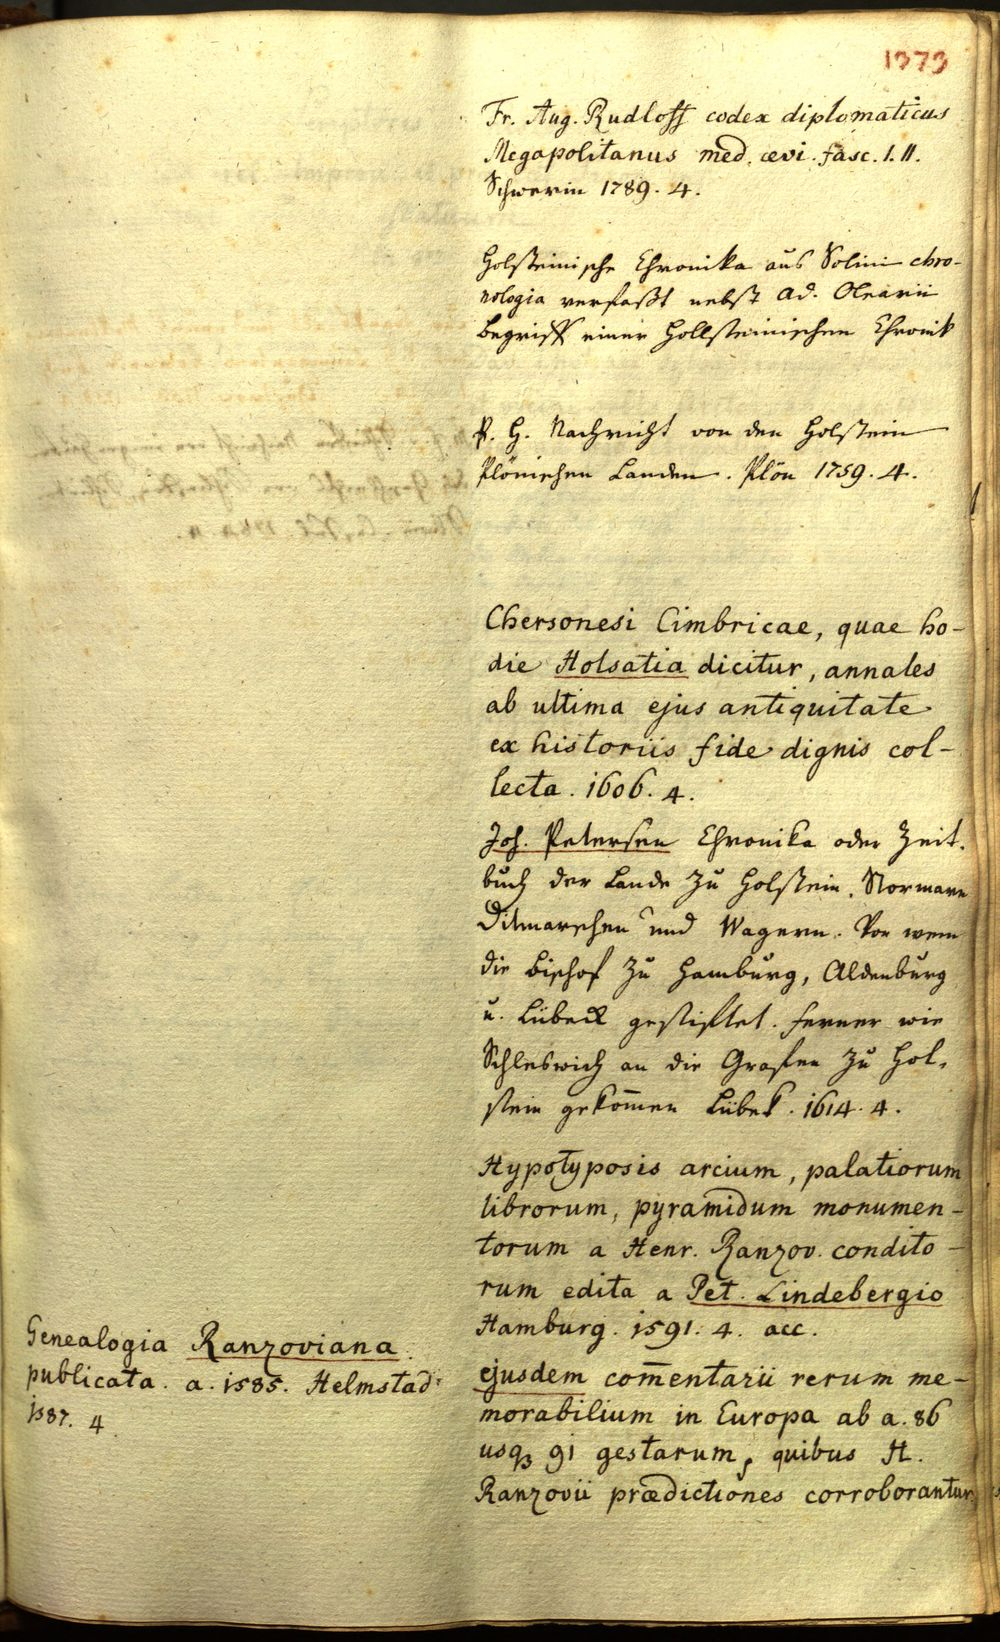 1373
Fr. Aug. Rudloff codex diplomaticus
Megapolitanus med. ævi. fasc. I. II.
Schwerin 1789. 4.
Holsteinische Chronika aus Solini chro-
nologia verfaßt nebst Ad. Olearii
Begriff einer Hollsteinischen Chronik
P. H. Nachricht von den Holstein
Plönischen Landen. Plön 1759. 4.
Chersonesi Cimbricae, quae ho-
die Holsatia dicitur, annales
ab ultima ejus antiquitate
ex historiis fide dignis col-
lecta. 1606. 4.
Joh. Petersen Chronika oder Zeit-
buch der Lande zu Holstein, Stormarn
Ditmarschen und Wagern. Von wem
die Bischof zu Hamburg, Aldenburg
u. Lübeck gestiftet. ferner wie
Schleswich an die Grafen zu Hol-
stein gekom̄en Lübek. 1614. 4.
Hypotyposis arcium, palatiorum
librorum, pyramidum monumen-
torum a Henr. Ranzov. condito-
rum edita a Pet. Lindebergio
Hamburg. 1591. 4. acc.
ejusdem com̄entarii rerum me-
morabilium in Europa ab a. 86
usq₃ 91 gestarum, quibus H.
Ranzovii prædictiones corroborantur
Genealogia Ranzoviana.
publicata. a. 1585. Helmstad
1587. 4